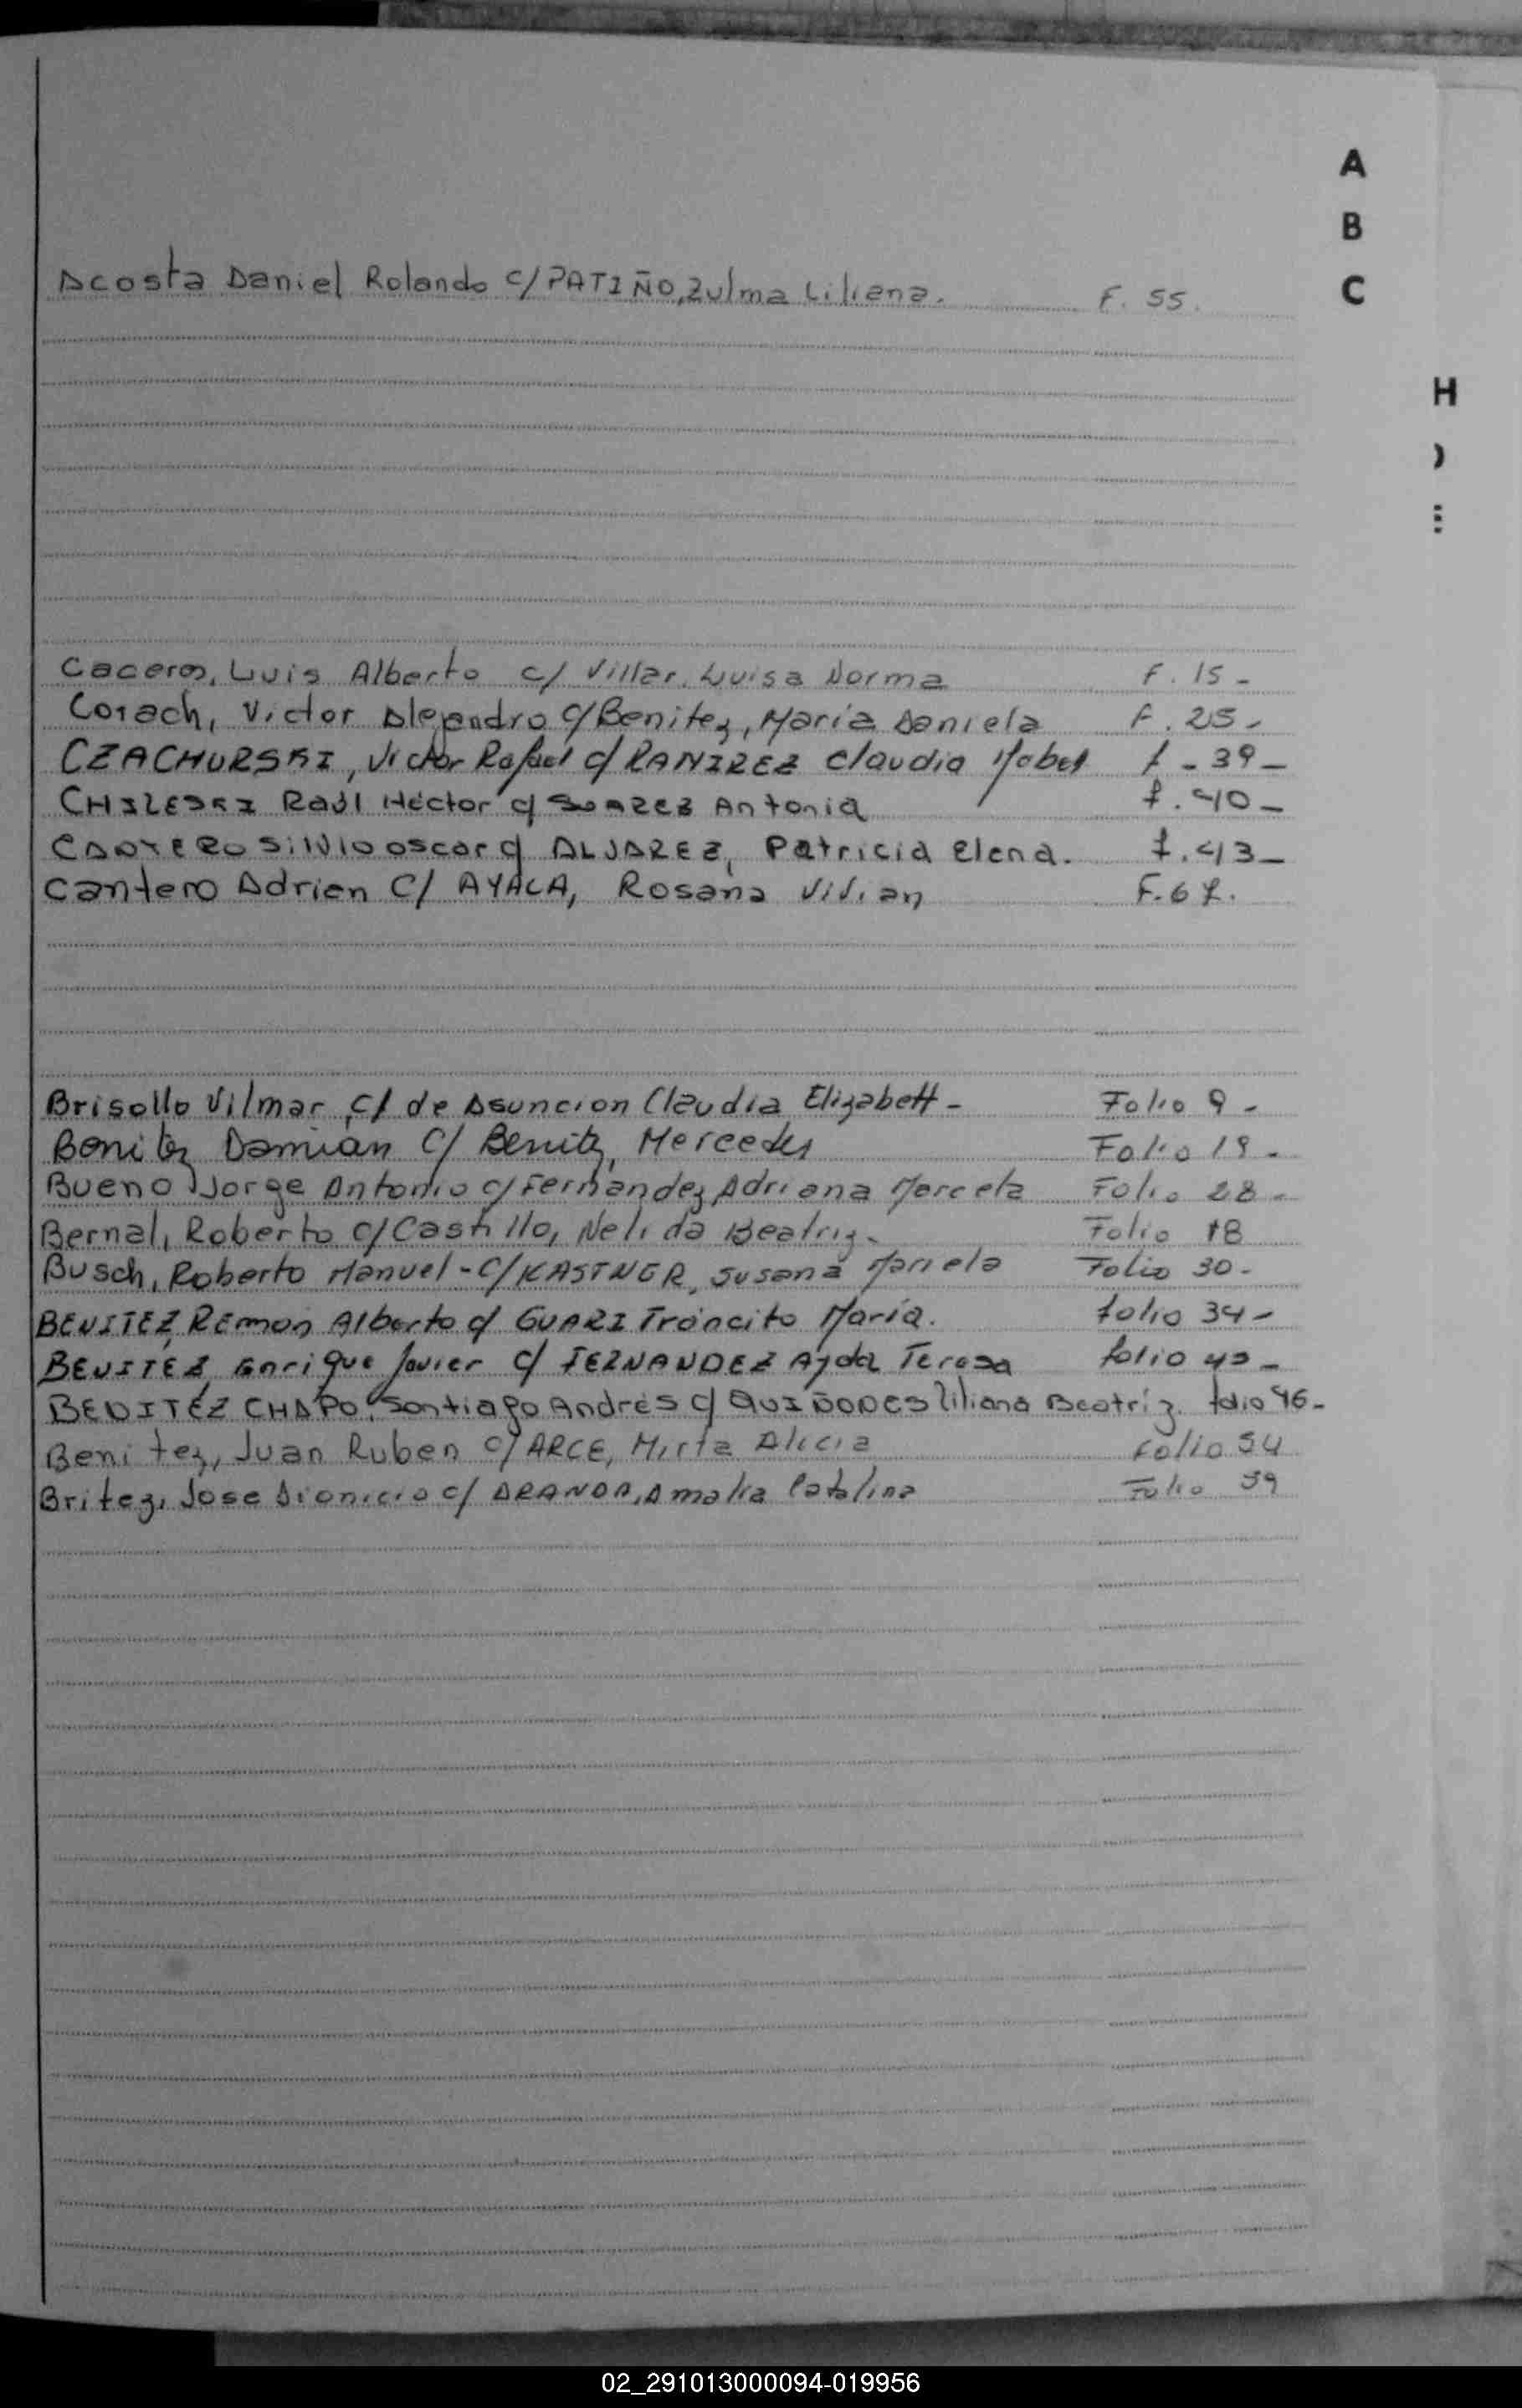 A
B
C
H
Acosta Daniel Rolando c/ PATIÑO, Zulma Liliana. F. 55.
Caceres, Luis Alberto c/ Villar, Luisa Norma F. 15-
Corach, Victor Alejandro c/ Benitez, María Daniela F. 25-
CZACHURSKI, Victor Rafael c/ RAMIREZ Claudia Mabel f - 39-
Raúl Héctor c/ SUAREZ Antonia f. 40-
CANTERO Silvio oscar c/ ALVAREZ, Patricia Elena. f. 43-
Cantero Adrian C/ AYALA, Rosana Vivian
Brisollo Vilmar c/ de Asuncion Claudia Elizabett- Folio 9-
Benitez Damian C/ Benitez, Mercedes Folio 19-
Bueno Jorge Antonio c/ Fernandez, Adriana Marcela Folio 28-
Bernal, Roberto c/ Castillo, Nelida Beatriz- Folio 18
Busch, Roberto Manuel - C/ KASTNER, Susana Mariela Folio 30-
BENITEZ, Ramon Alberto c/ GUARI Tráncito María. folio 34-
BENITEZ Enrique Javier c/ FERNANDEZ Ayda Teresa folio
BENITEZ CHAPO, Santiago Andrés c/ QUIÑONES Liliana Beatríz. folio 46-
Benitez, Juan Ruben c/ ARCE, Mirta Alicia Folio 54
Britez, Jose Dionicio c/ ARANDA, Amalia Catalina Folio 59
02_291013000094-019956